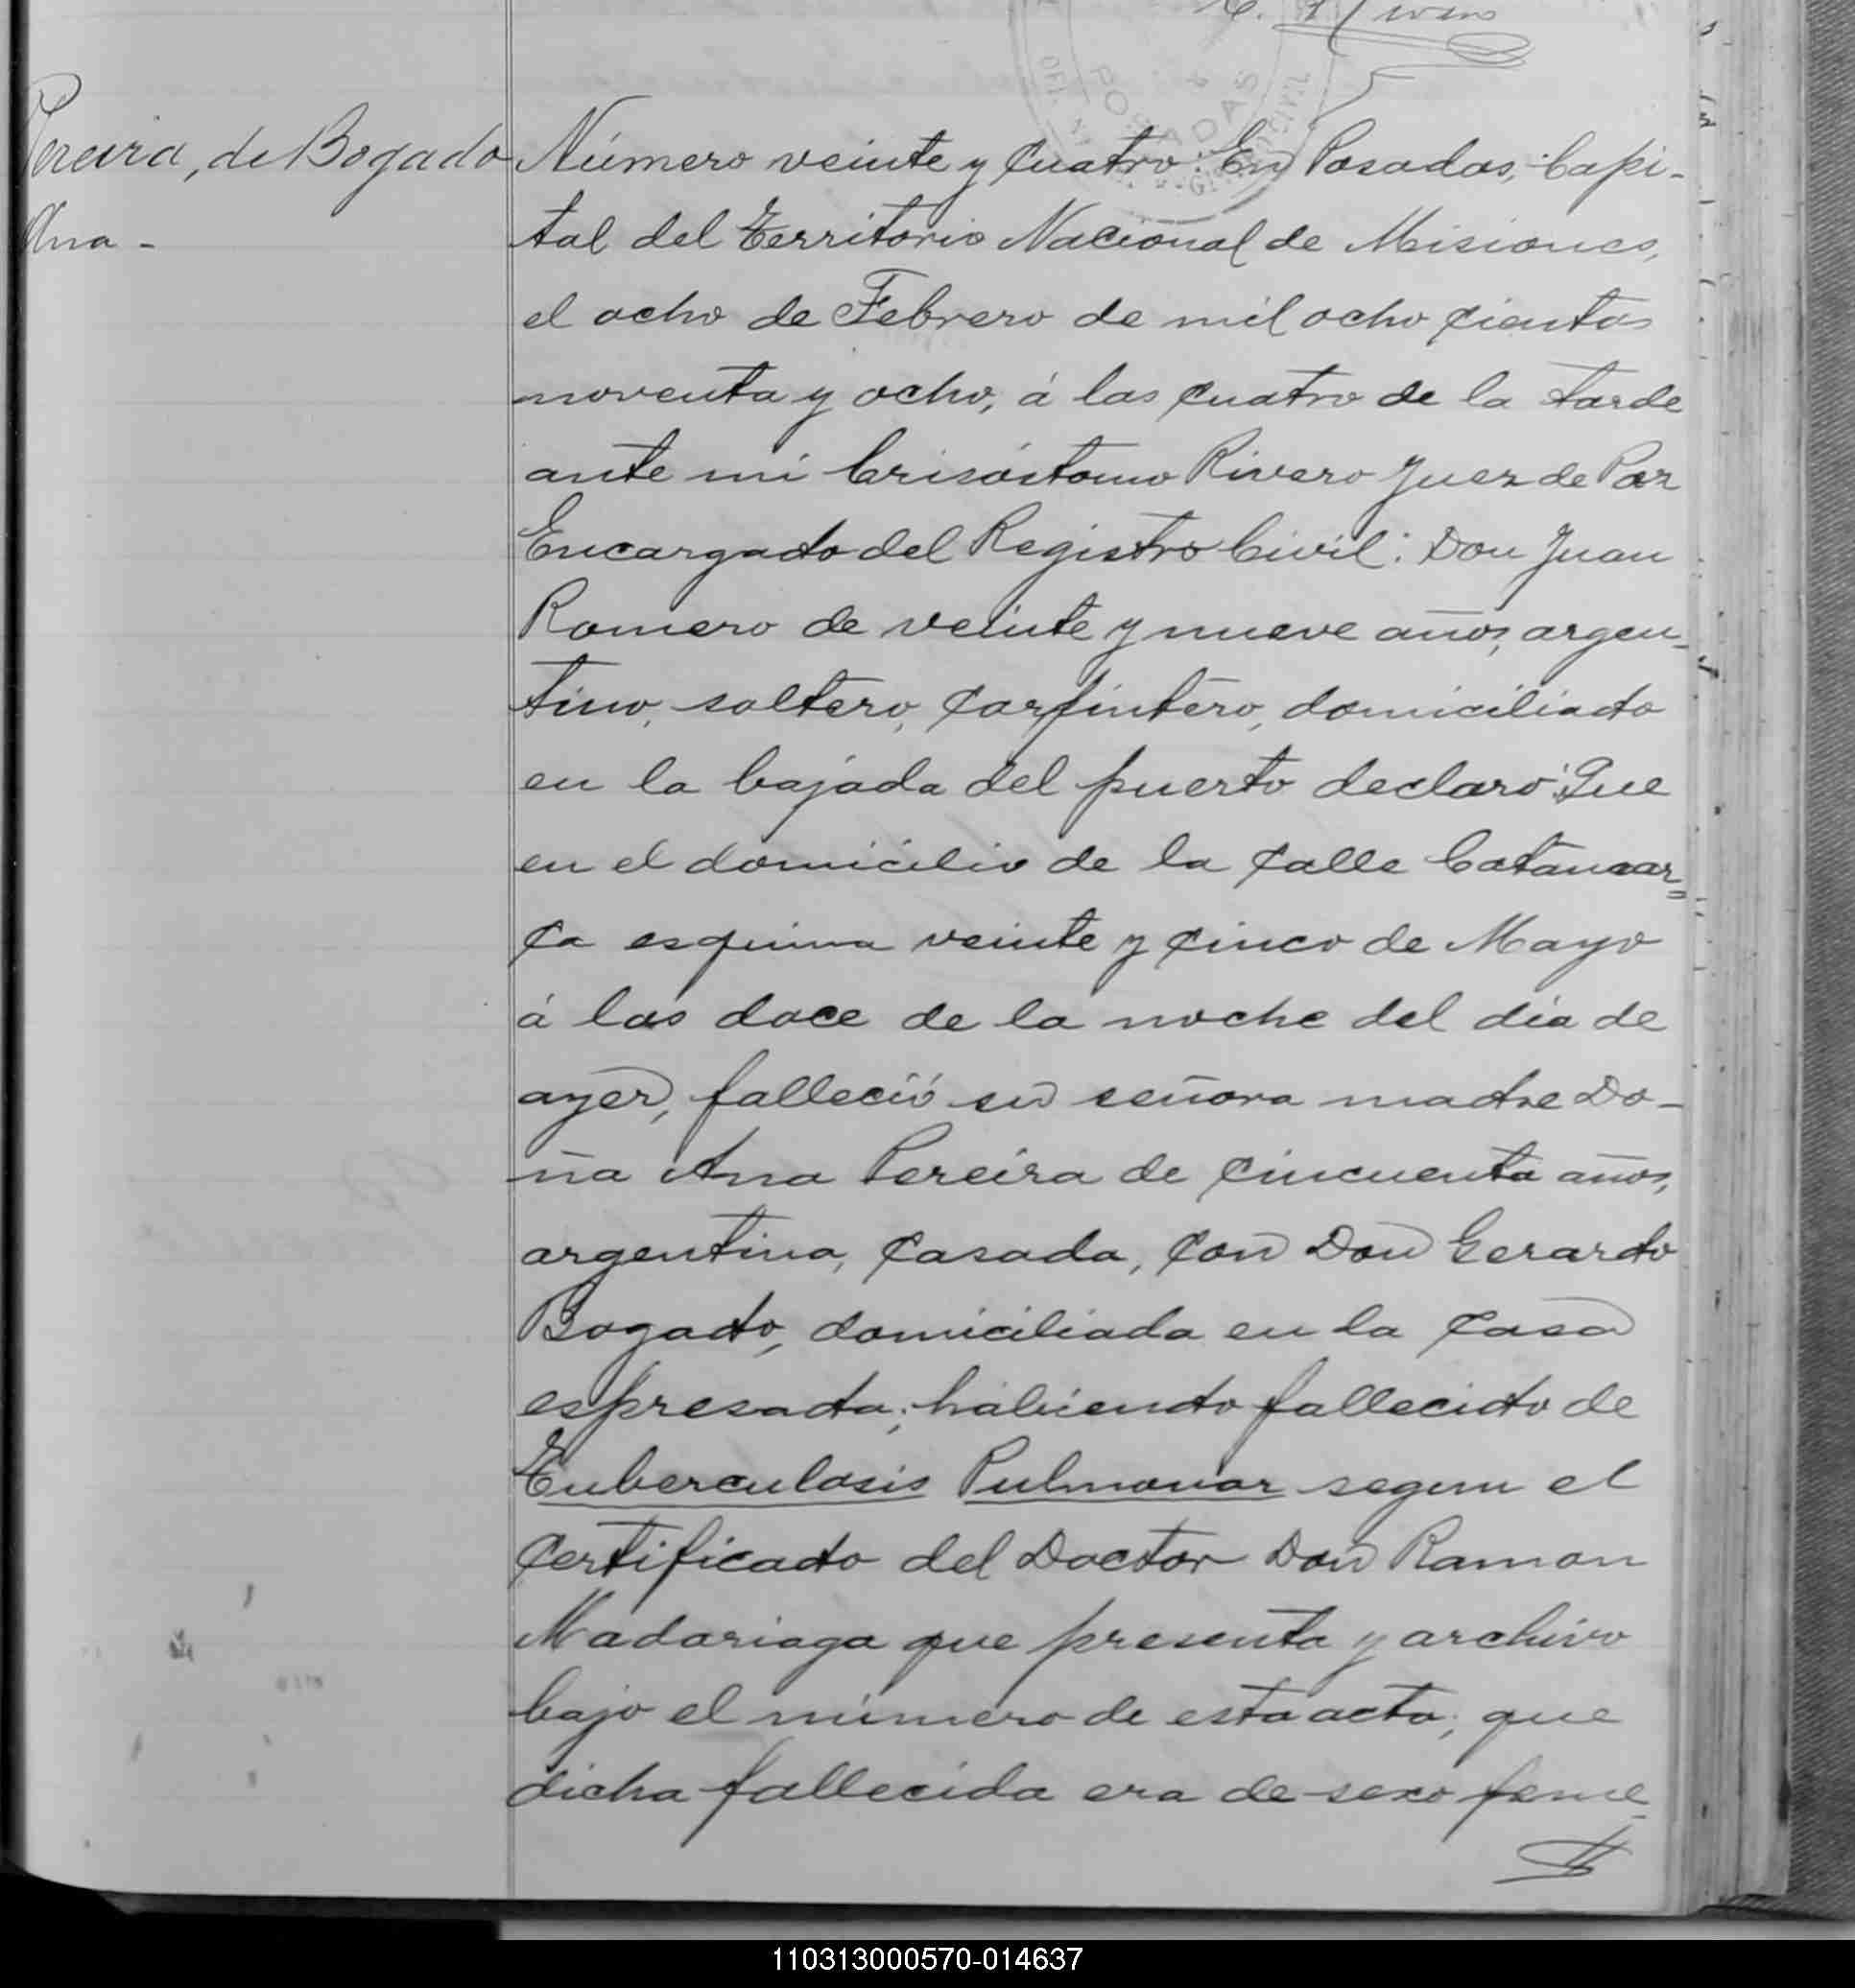 Rivero
POSADAS
Pereira, de Bogado
Ana -
Número veinte y cuatro: En Posadas, Capi-
tal del Territorio Nacional de Misiones,
el ocho de Febrero de mil ocho cientos
noventa y ocho, á las cuatro de la tarde
ante mi Crisóstomo Rivero Juez de Paz
Encargado del Registro Civil: Don Juan
Romero de veinte y nueve años, argen-
tino, soltero, carpintero, domiciliado
en la bajada del puerto declaró: Que
en el domicilio de la calle Catamar=
ca esquina veinte y cinco de Mayo
á las doce de la noche del día de
ayer, falleció su señora madre Do-
ña Ana Pereira de cincuenta años,
argentina, casada, con Don Gerardo
Bogado, domiciliada en la casa
espresada; habiendo fallecido de
Tuberculosis Pulmonar segun el
certificado del Doctor Don Ramon
Madariaga que presenta y archivo
bajo el número de esta acta; que
dicha fallecida era de sexo feme-
110313000570-014637